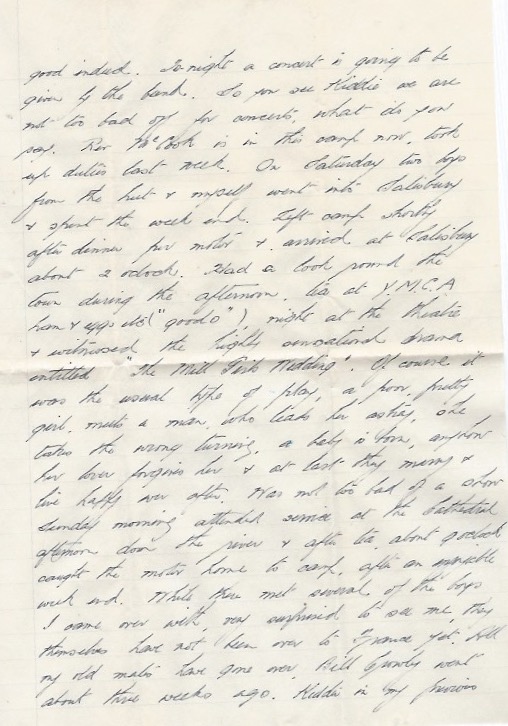 good indeed. To-night a concert is going to be
given by the band. So you see Kiddie we are
not too bad off for concerts, what do you
say. Rev McCook is in this camp now, took
up duties last week. On Saturday two boys
from the hut & myself went into Salisbury
& spent the week end. Left camp shortly
after dinner per motor & arrived at Salisbury
about 2 oclock. Had a look round the
town during the afternoon, tea at Y.M.C.A
ham & eggs etc ("goodo"), night at the theatre
& witnessed the highly sensational drama
entitled "The Mill Girls Wedding". Of course it
was the usual type of play, a poor pretty
girl, meets a man, who leads her astray, she
takes the wrong turning, a baby is born, anyhow
her lover forgives her & at last they marry &
live happy ever after. Was not too bad of a show
Sunday morning attended service at the Cathedral
afternoon down the river & after tea about oclock
caught the motor home to camp, after an enjoyable
week end. While there met several of the boys
I came over with, very surprised to see me, they
themselves have not been over to France yet. All
my old mates have gone over, Bill went
about three weeks ago. Kiddie in my previous